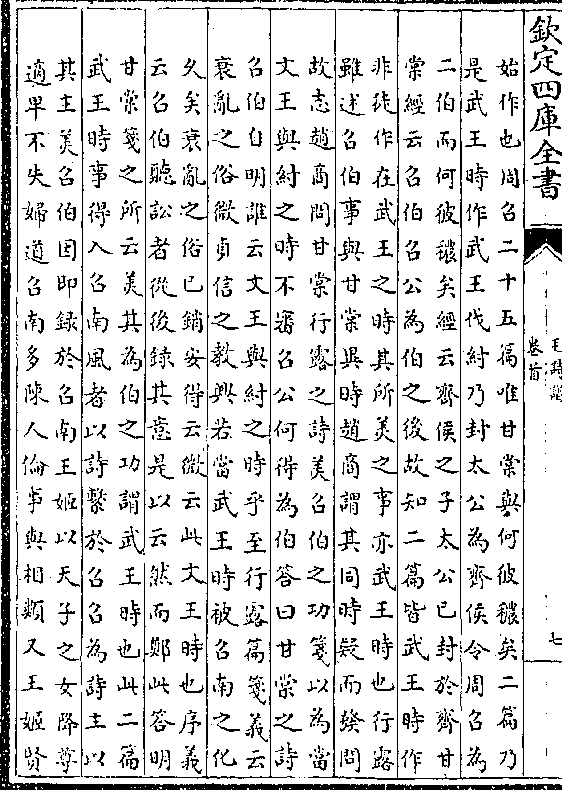 欽定四庫全書
毛詩譜
卷首
七
始作也周召二十五篇唯甘棠與何彼穠矣二篇乃
是武王時作武王伐紂乃封太公為齊侯令周召為
二伯而何彼穠矣經云齊侯之子太公已封於齊甘
棠經云召伯召公為伯之後故知二篇皆武王時作
非徒作在武王之時其所美之事亦武王時也行露
雖述召伯事與甘棠異時趙商謂其同時疑而發問
故志趙商問甘棠行露之詩美召伯之功箋以為當
文王與紂之時不審召公何得為伯答曰甘棠之詩
召伯自明誰云文王與紂之時乎至行露篇箋義云
衰亂之俗微貞信之教興若當武王時被召南之化
久矣衰亂之俗已銷安得云微云此文王時也序義
云召伯聽訟者從後録其意是以云然而鄭此答明
甘棠箋之所云美其為伯之功謂武王時也此二篇
武王時事得入召南風者以詩繫於召召為詩主以
其主美召伯因即録於召南王姬以天子之女降尊
適卑不失婦道召南多陳人倫事與相類又王姬賢